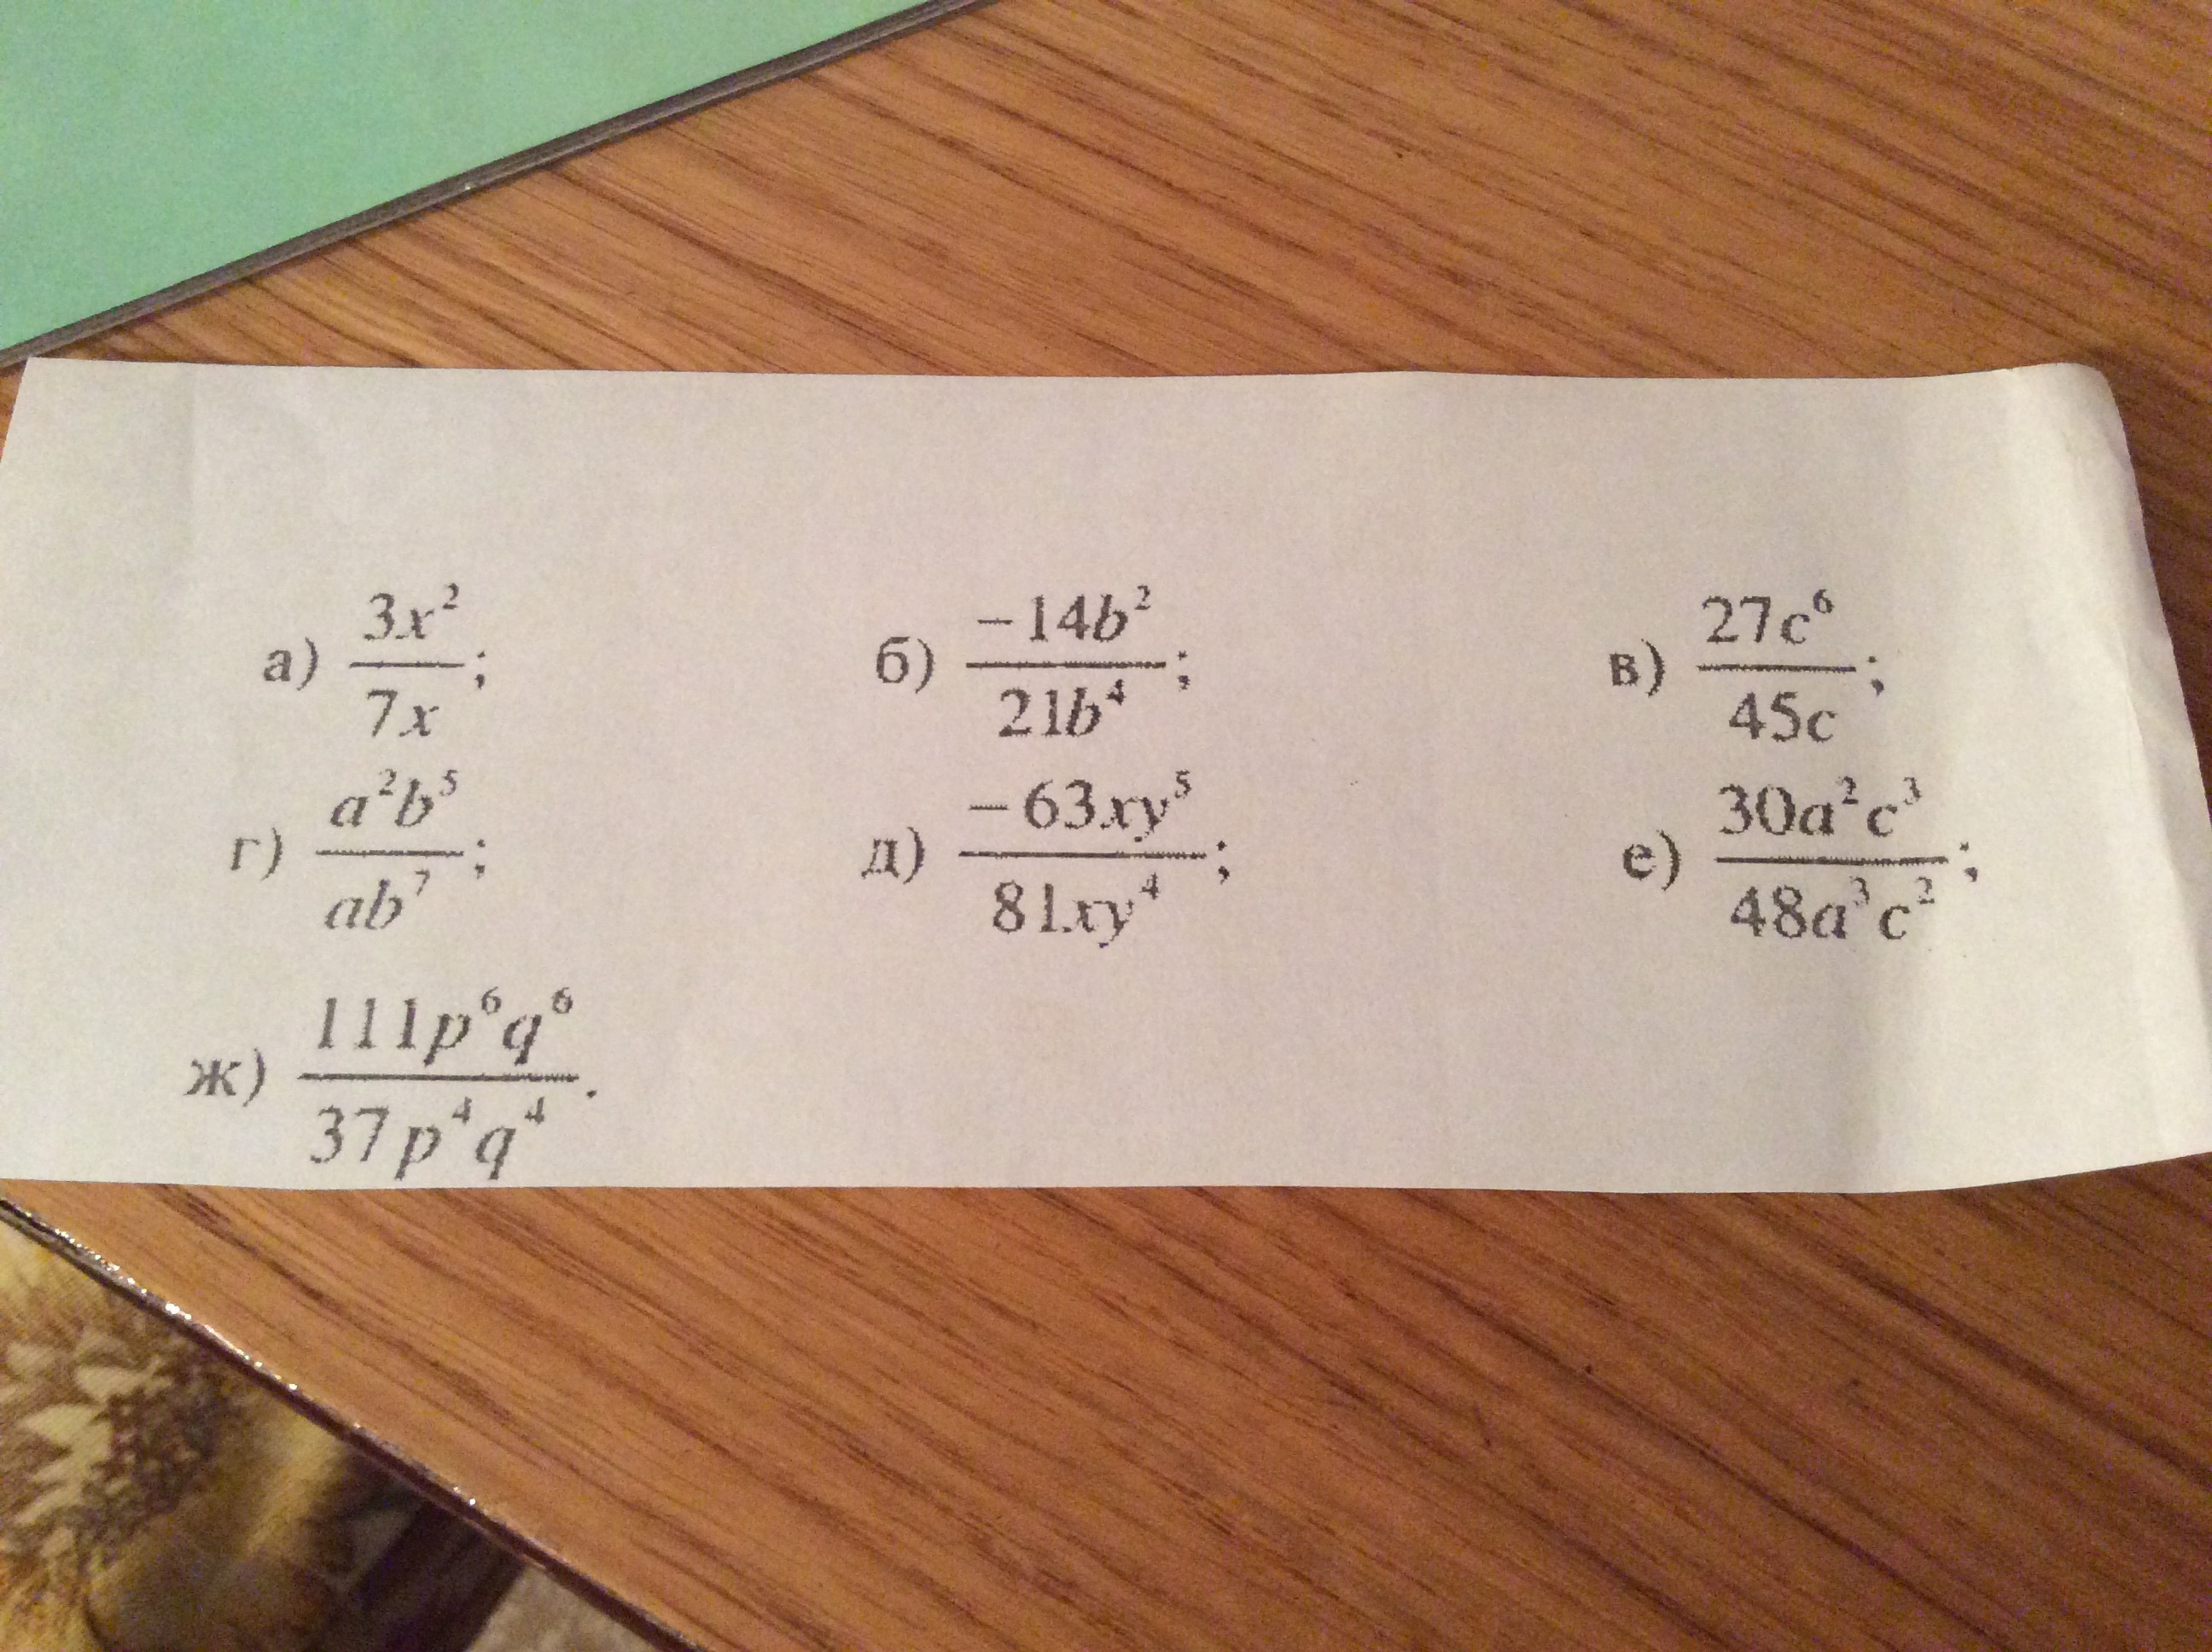 а) \frac{3x^2}{7x}; б) \frac{-14b^2}{21b^4}; в) \frac{27c^6}{45c};
г) \frac{a^2b^5}{ab^7}; д) \frac{-63xy^5}{81xy^4}; е) \frac{30a^2c^3}{48a^3c^2};
ж) \frac{111p^6q^6}{37p^4q^4}.